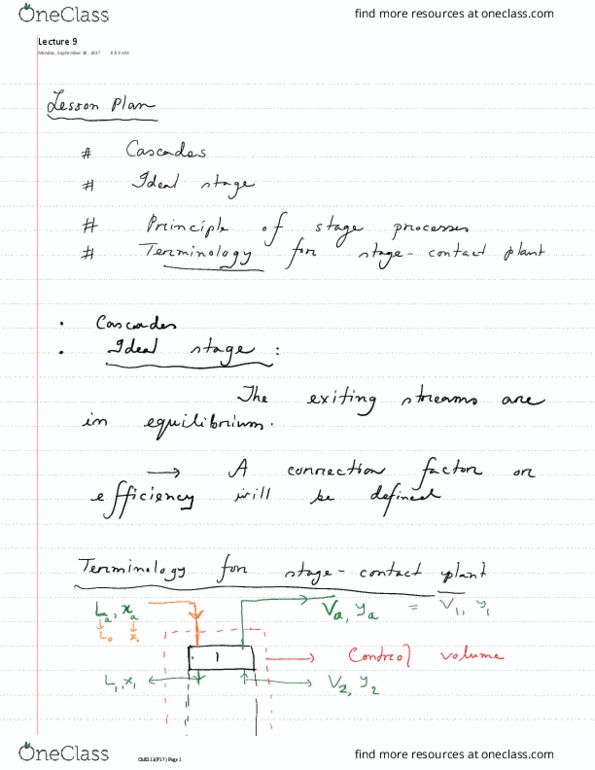 OneClass find more resources at oneclass.com
Lecture 9
Lesson Plan
# Cascades
# Ideal stage
# Principle of stage processes
# Terminology for stage-contact plant
• Cascades
• Ideal stage :
The exiting streams are
in equilibrium.
→ A correction factor or
efficiency will be defined
Terminology for stage-contact plant
La, xa Va, ya = V1, y1
L0 x0
1 Control volume
L1, x1 V2, y2
OneClass find more resources at oneclass.com